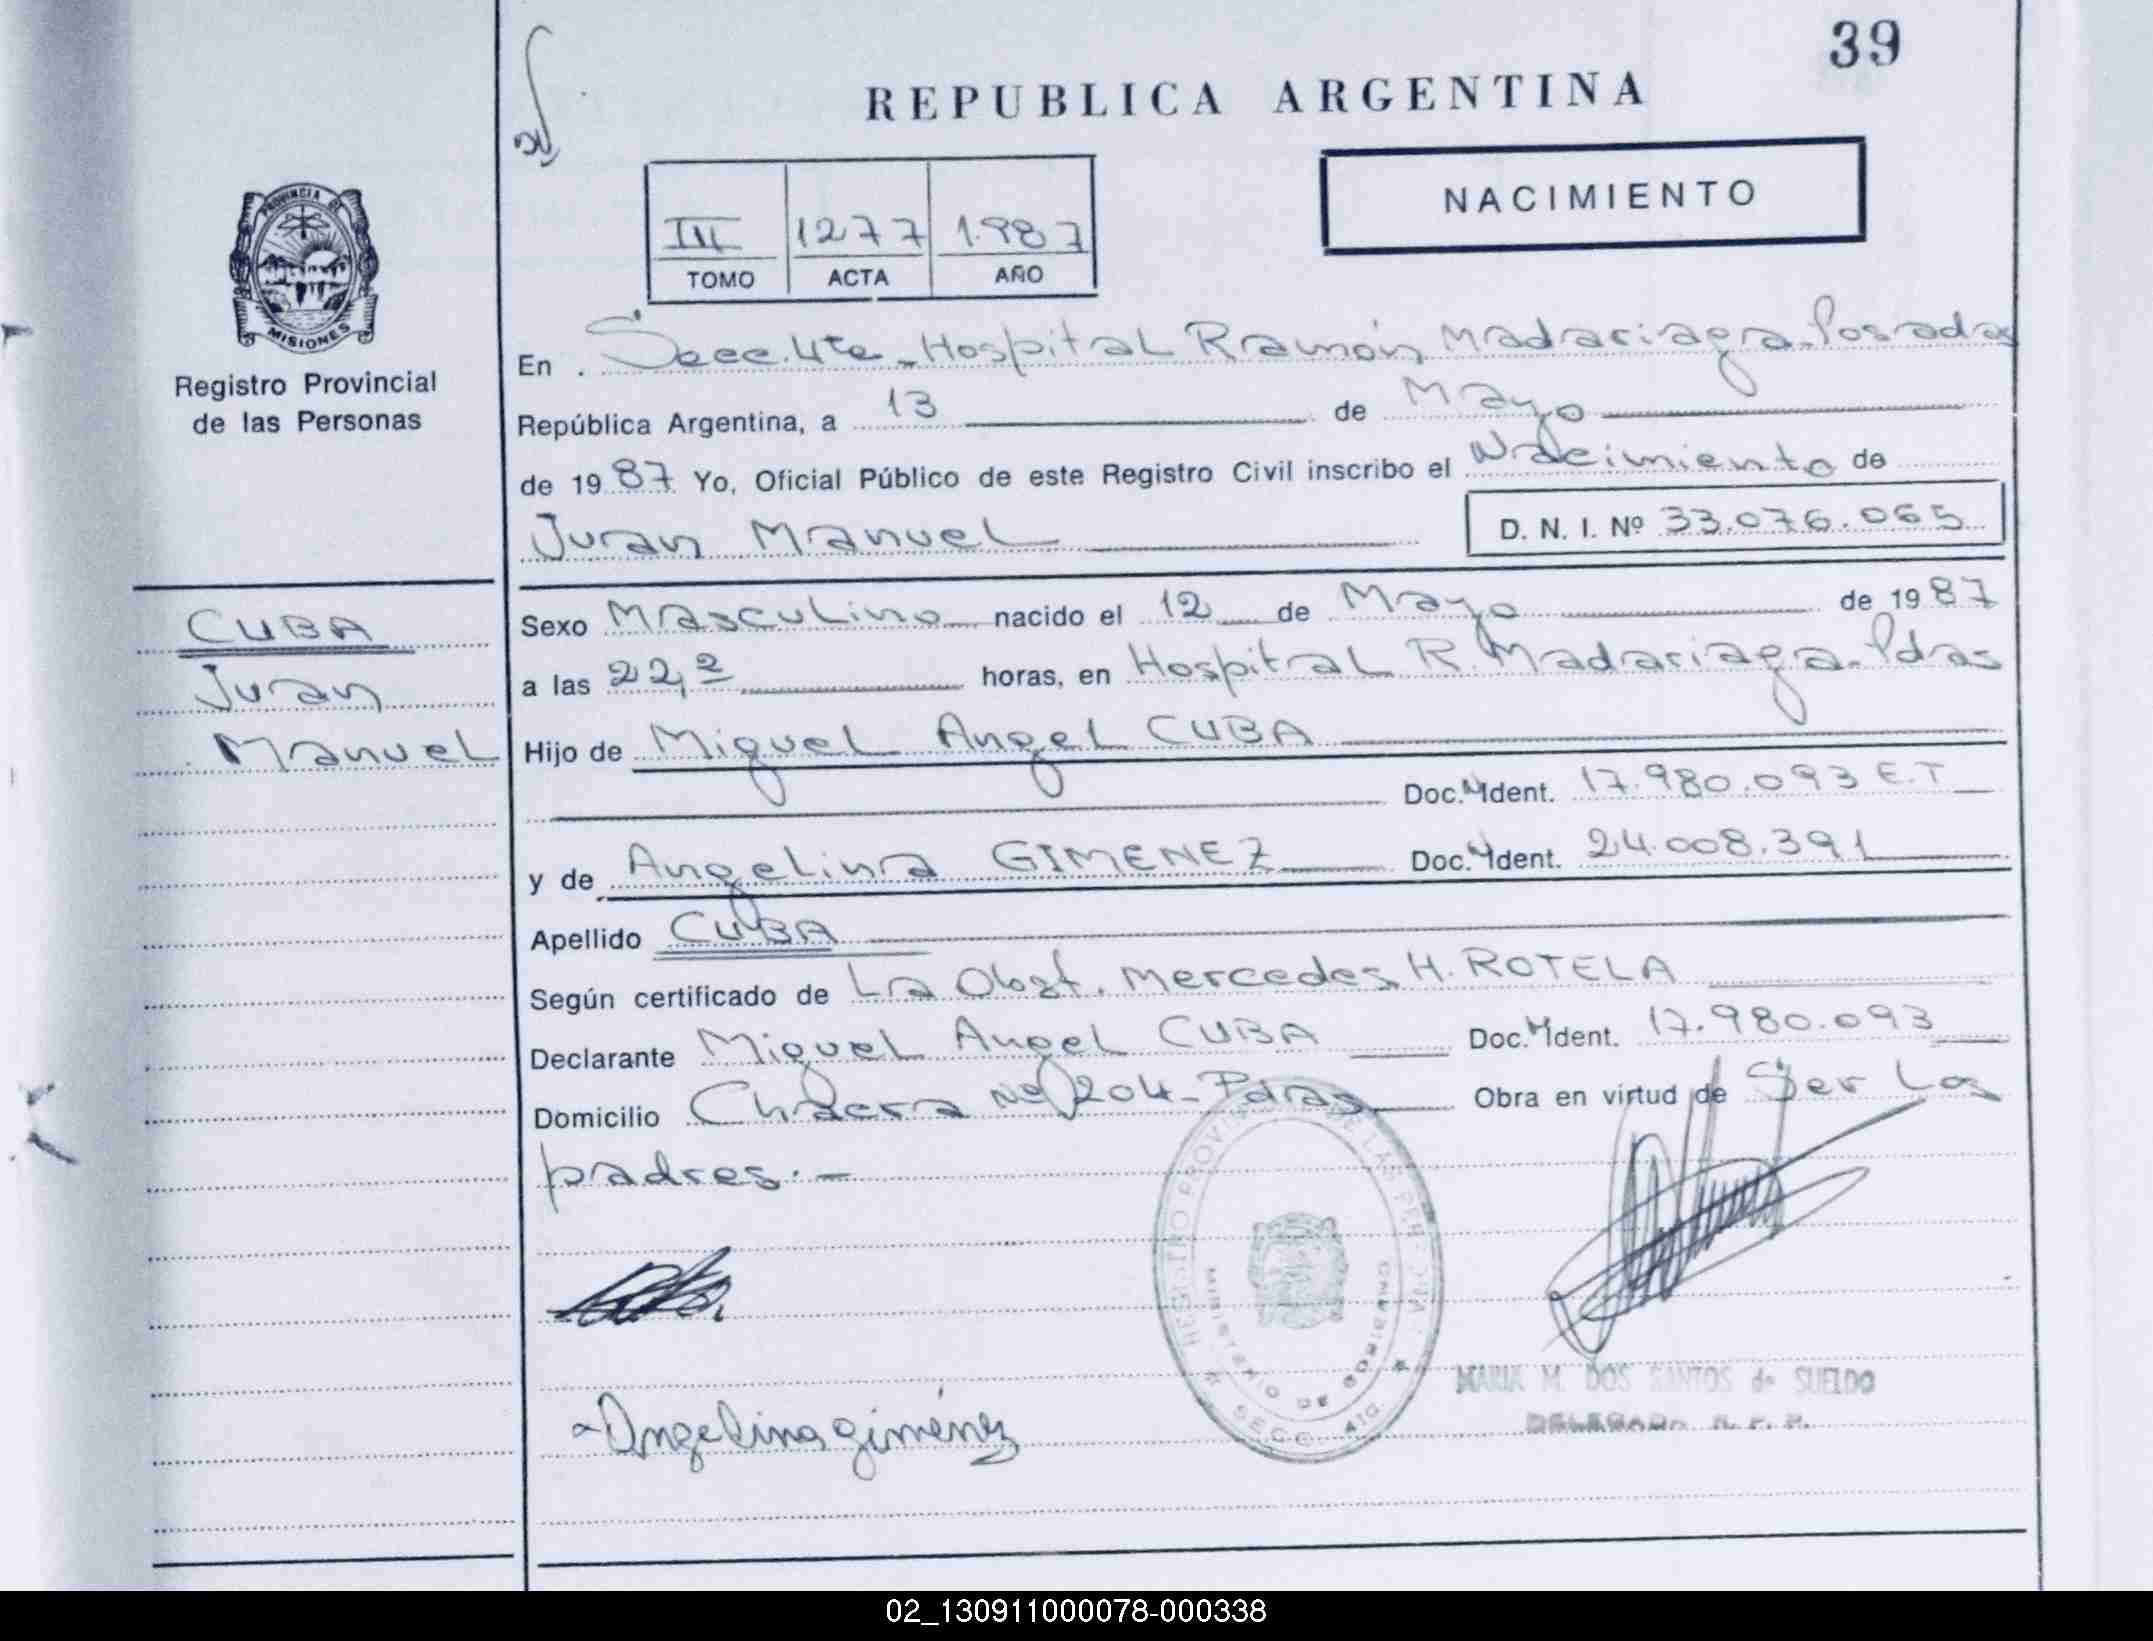 39
REPUBLICA ARGENTINA
NACIMIENTO
III 1277 1.987
TOMO ACTA AÑO
PROVINCIA DE
MISIONES
Registro Provincial
de las Personas
En Secc. 4ta - Hospital Ramón Madariaga - Posadas
República Argentina, a 13 de Mayo
de 1987 Yo, Oficial Público de este Registro Civil inscribo el Nacimiento de
Juan Manuel D. N. I. Nº 33.076.065
CUBA
Juan
Manuel
Sexo Masculino nacido el 12 de Mayo de 1987
a las 22,2 horas, en Hospital R. Madariaga - Pdas
Hijo de Miguel Angel CUBA
Doc. Ident. 17.980.093 E.T
y de Angelina GIMENEZ Doc. Ident. 24.008.391
Apellido CUBA
Según certificado de La Obst. Mercedes H. ROTELA
Declarante Miguel Angel CUBA Doc. Ident. 17.980.093
Domicilio Chacra Nº 204 - Pdas Obra en virtud de Ser Los
padres. -
REGISTRO PROVINCIAL DE LAS PERSONAS
MINISTERIO DE GOBIERNO
SECC.
MARIA M. DOS SANTOS de SUELDO
DELEGADA R. P. P.
Angelina giménez
02_130911000078-000338